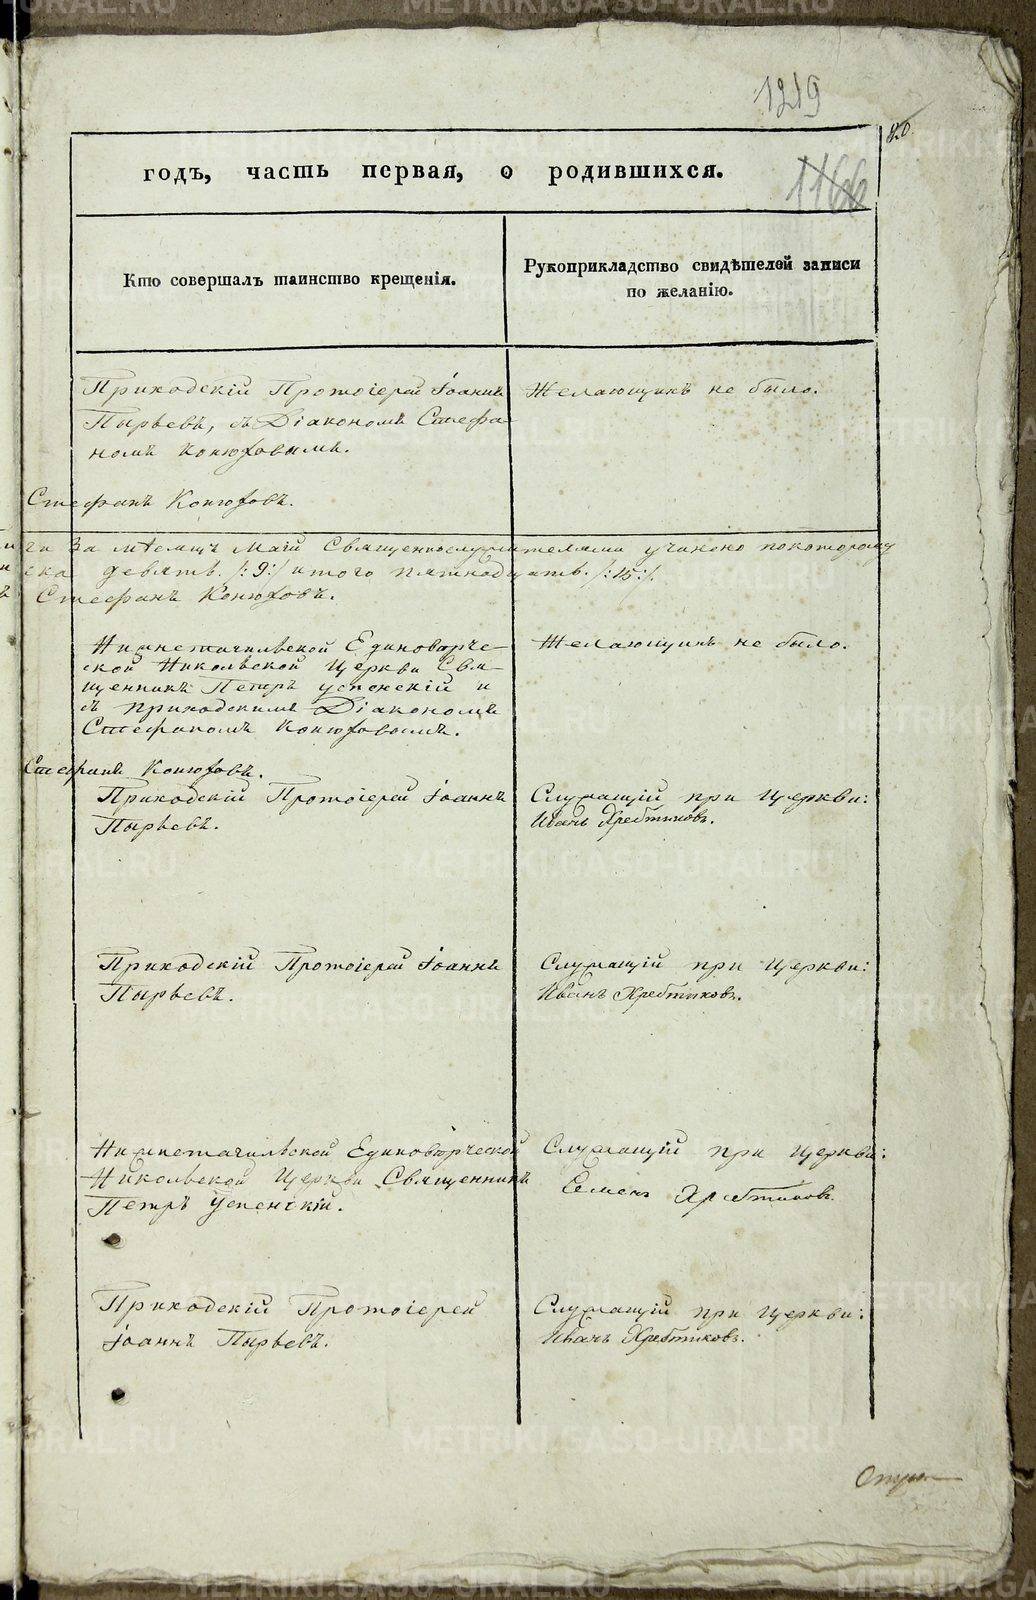 METRIKI.GASO-URAL.RU
1219
80.
годъ, часть первая, о родившихся.
1166
Кто совершалъ таинство крещенія.
Рукоприкладство свидѣтелей записи
по желанію.
Приходскій Протоіерей Іоаннъ
Пырьевъ, съ Діакономъ Стефа-
номъ Конюховымъ.
Желающихъ не было.
Стефанъ Конюховъ.
за мѣсяцъ Маій Священнослужителями учинено покоторому
девять. /:9:/ итого пятнадцать. /:15:/.
Стефанъ Конюховъ.
Нижнетагильской Единовѣрче-
ской Никольской Церкви Свя-
щенникъ Петръ Успенскій и
съ приходскимъ Діакономъ
Стефаномъ Конюховымъ.
Желающихъ не было.
Стефанъ Конюховъ.
Приходскій Протоіерей Іоаннъ
Пырьевъ.
Служащій при Церкви:
Иванъ Хребтиковъ.
Приходскій Протоіерей Іоаннъ
Пырьевъ.
Служащій при Церкви:
Иванъ Хребтиковъ.
Нижнетагильской Единовѣрческой
Никольской Церкви Священникъ
Петръ Успенскій.
Служащій при Церкви:
Семенъ Хребтиковъ
Приходскій Протоіерей
Іоаннъ Пырьевъ.
Служащій при Церкви:
Иванъ Хребтиковъ.